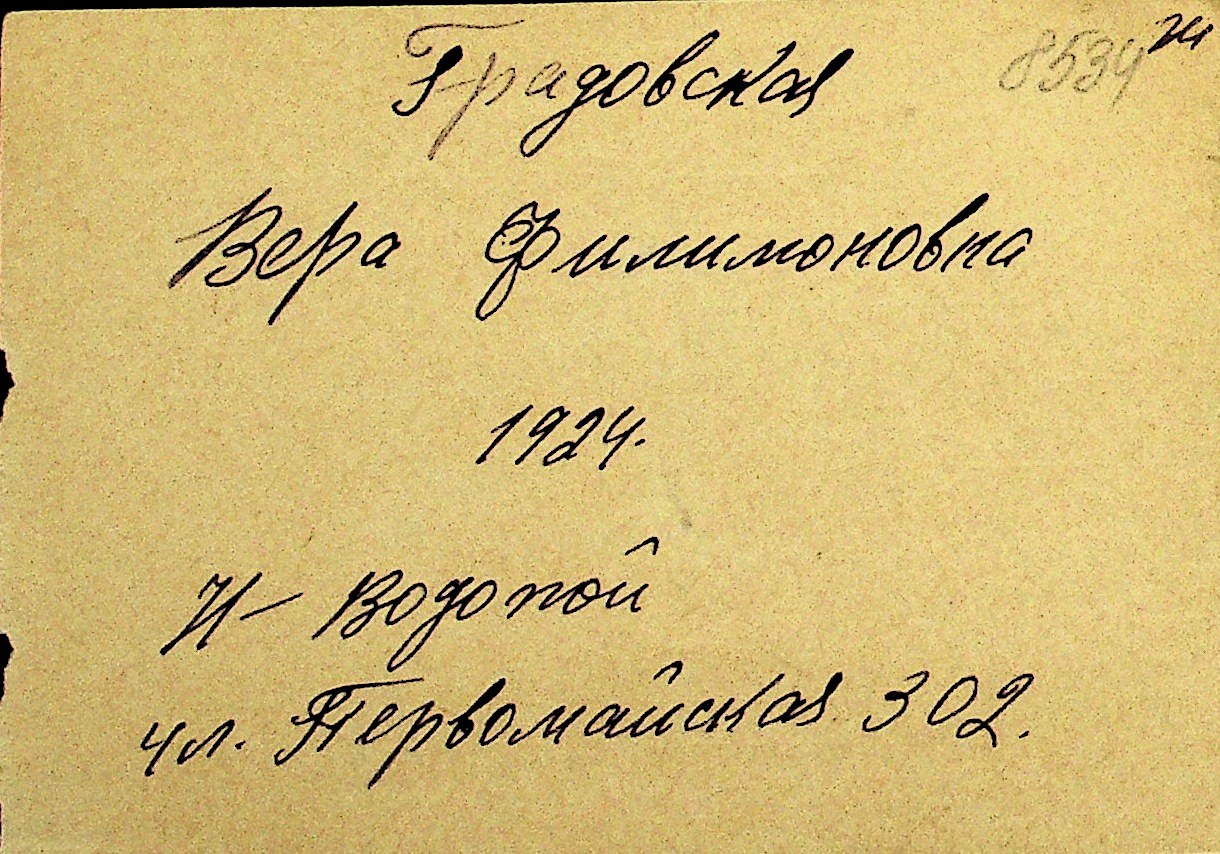 8534 ж
Градовская
Вера Филимоновна
1924.
Н- Водопой
ул. Первомайская 302.